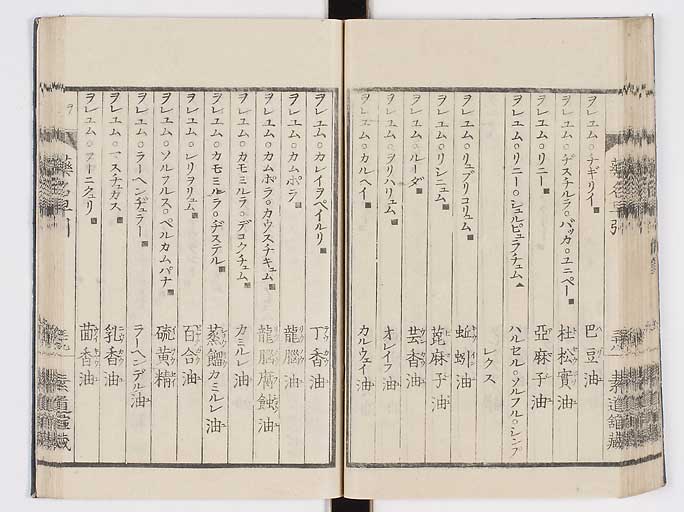 ヲレユム○チギリイ 巴豆油
ヲレユム○ヂスチルラ○バッカ○ユニペー 杜松實油
ヲレユム○リニー 亞麻子油
ヲレユム○リニー○シュルピュラアチュム ハルセル○ソルフル○シンプ
レクス
ヲレユム○リュブリコリュム 蚯蚓油
ヲレユム○リシニュム 萞麻子油
ヲレユム○ルーダ 芸香油
ヲレユム○ヲリハリュム オレイフ油
ヲレユム○カルヘイ カルウェイ油
ヲレユム○カレイヲペイルリ 丁香油
ヲレユム○カムポラ 龍腦油
ヲレユム○カムポラ○カウスチキュム 龍腦腐蝕油
ヲレユム○カモミルラ○デコクチュム カミルレ油
ヲレユム○カモミルラ○ヂステル 蒸餾カミルレ油
ヲレユム○レリヲリュム 百合油
ヲレユム○ソルフルス○ペルカムパナ 硫黄精
ヲレユム○ラーヘンヂュラー ラーヘンデル油
ヲレユム○マスチュガス 乳香油
ヲレユム○フーニクュリ 茴香油